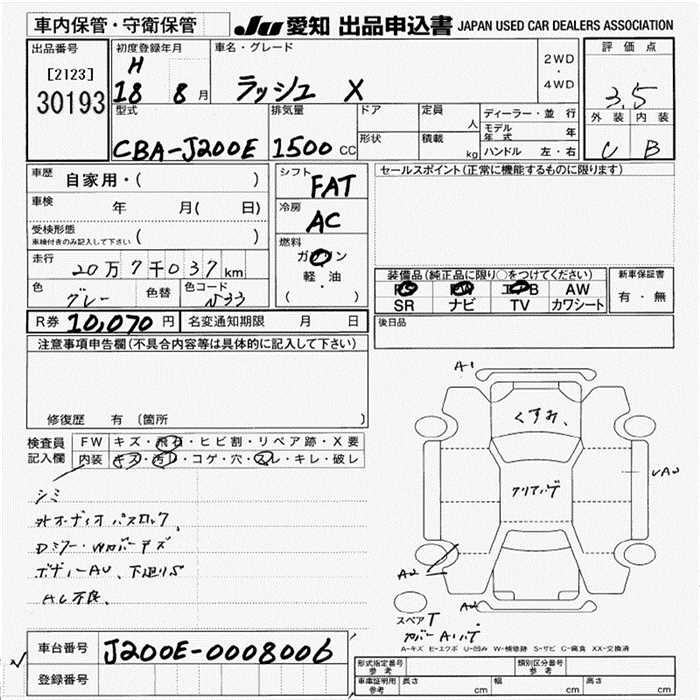 車内保管・守衛保管
JU 愛知 出品申込書 JAPAN USED CAR DEALERS ASSOCIATION
出品番号
[2123]
30193
初度登録年月
H
18 8 月
車名・グレード
ラッシュ X
2WD
・
4WD
評価点
3.5
外装 内装
C B
型式
CBA-J200E
排気量
1500 CC
ドア
形状
定員
人
積載
kg
ディーラー・並行
モデル年式 年
ハンドル 左・右
車歴 自家用・( )
車検 年 月( 日)
受検形態
車検付きのみ記入して下さい ( )
走行 20万7千037km
色 グレー 色替 色コード N33
シフト
FAT
冷房
AC
燃料
ガソリン
軽・油
( )
セールスポイント(正常に機能するものに限ります)
装備品(純正品に限り○をつけてください)
PS PW エアB AW
SR ナビ TV カワシート
新車保証書
有・無
R券 10,070 円 名変通知期限 月 日
後日品
注意事項申告欄(不具合内容等は具体的に記入して下さい)
修復歴 有 〔箇所 〕
検査員記入欄
FW キズ・飛石・ヒビ割・リペア跡・X要
内装 キズ・汚レ・コゲ・穴・スレ・キレ・破レ
シミ
社オーディオ パスロック
Dミラー・Wカバーキズ
ボディーAU、下廻りS
AC不良、
A1
くすみ、
クリアハゲ
A2
A2
スペア T
カバーA1ハゲ
A-キズ E-エクボ U-凹み W-補修跡 S-サビ C-腐食 XX-交換済
車台番号 J200E-0008006
登録番号
形式指定番号
参考
類別区分番号
参考
車庫証明用
参考
長さ cm
幅 cm
高さ cm